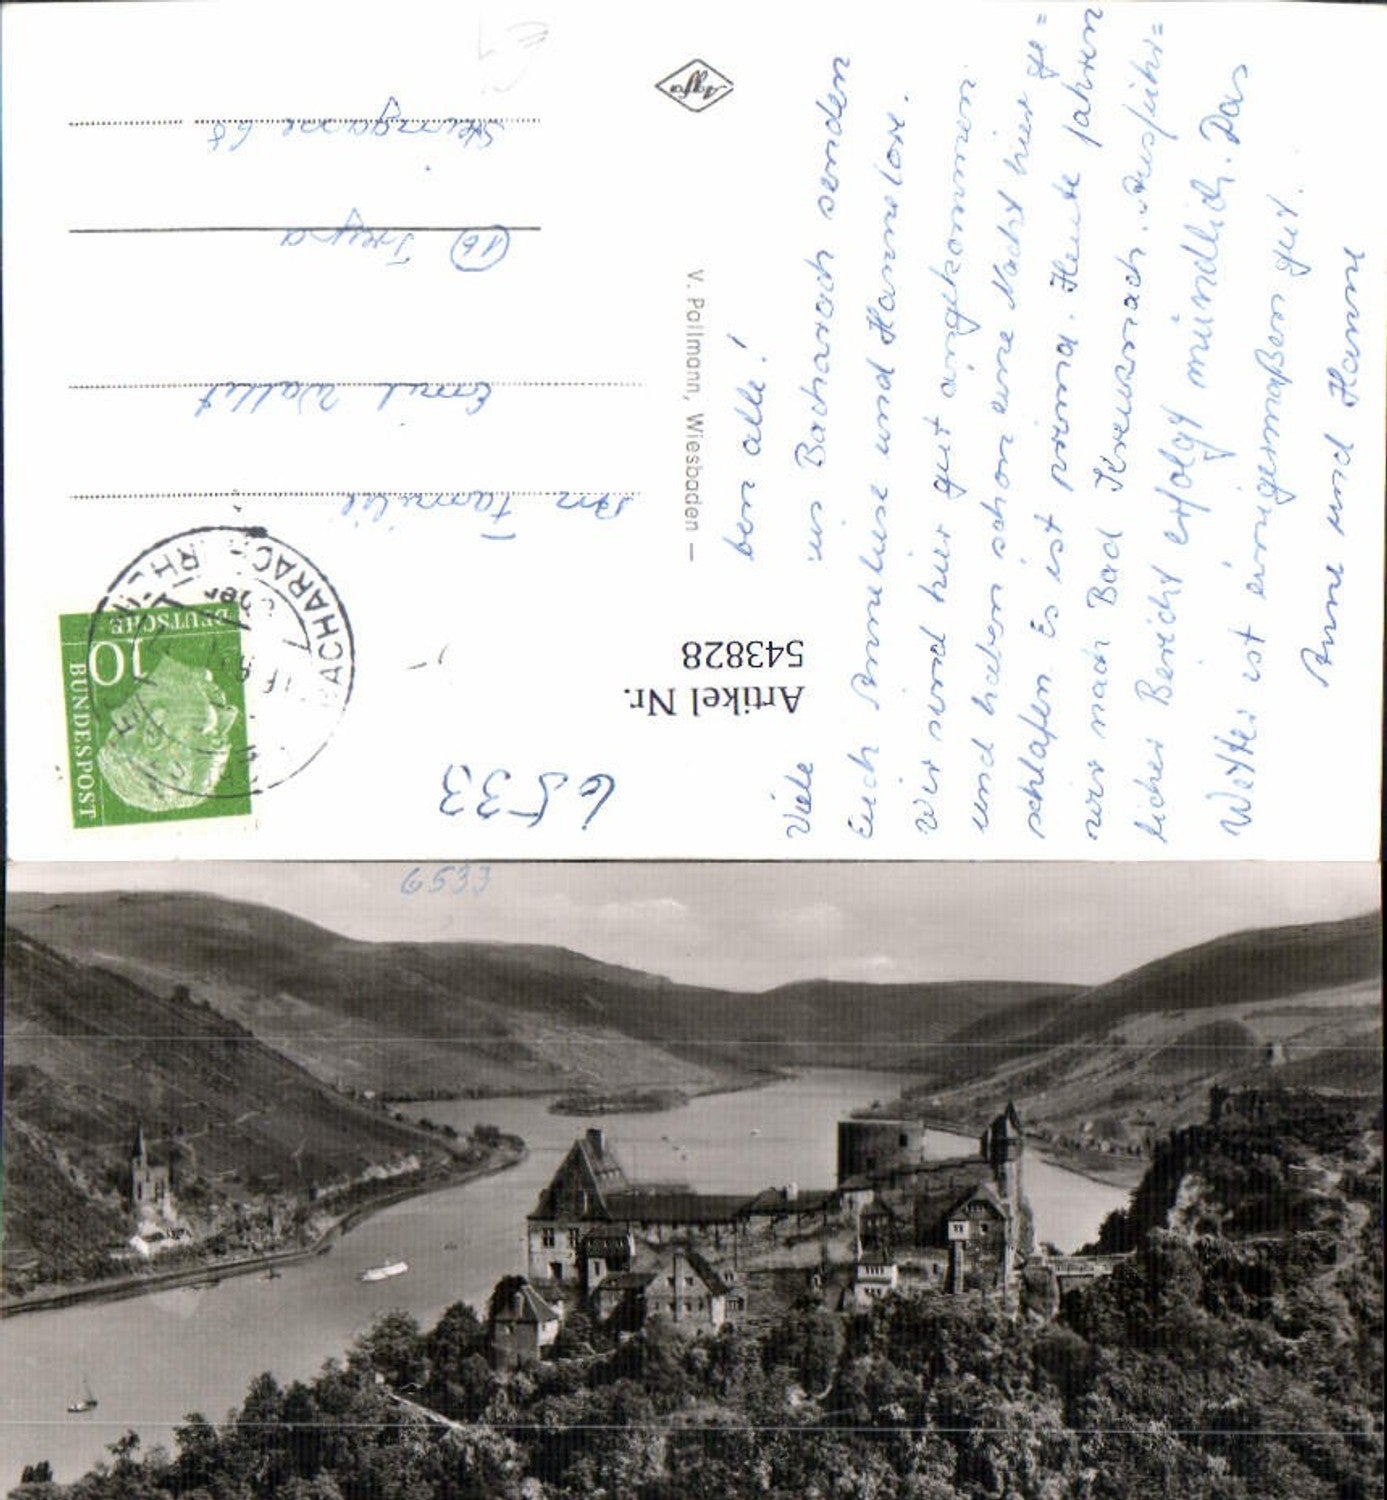 Ihr Lieben alle!
Viele
aus Bacharach senden
Euch Anneliese und Hannelore.
Wir sind hier gut angekommen
und haben schon eine Nacht hier ge=
schlafen. Es ist prima. Heute fahren
wir nach Bad Kreuznach. Ausführ=
licher Bericht erfolgt mündlich. Das
Wetter ist einigermaßen gut.
Anne und Hanne
V. Pollmann, Wiesbaden –
Agfa
An Familie
Emil Wallit
(16) Treysa
Steingasse 68
DEUTSCHE
BUNDESPOST
10
BACHARACH RHEIN
Artikel Nr.
543828
6533
6533